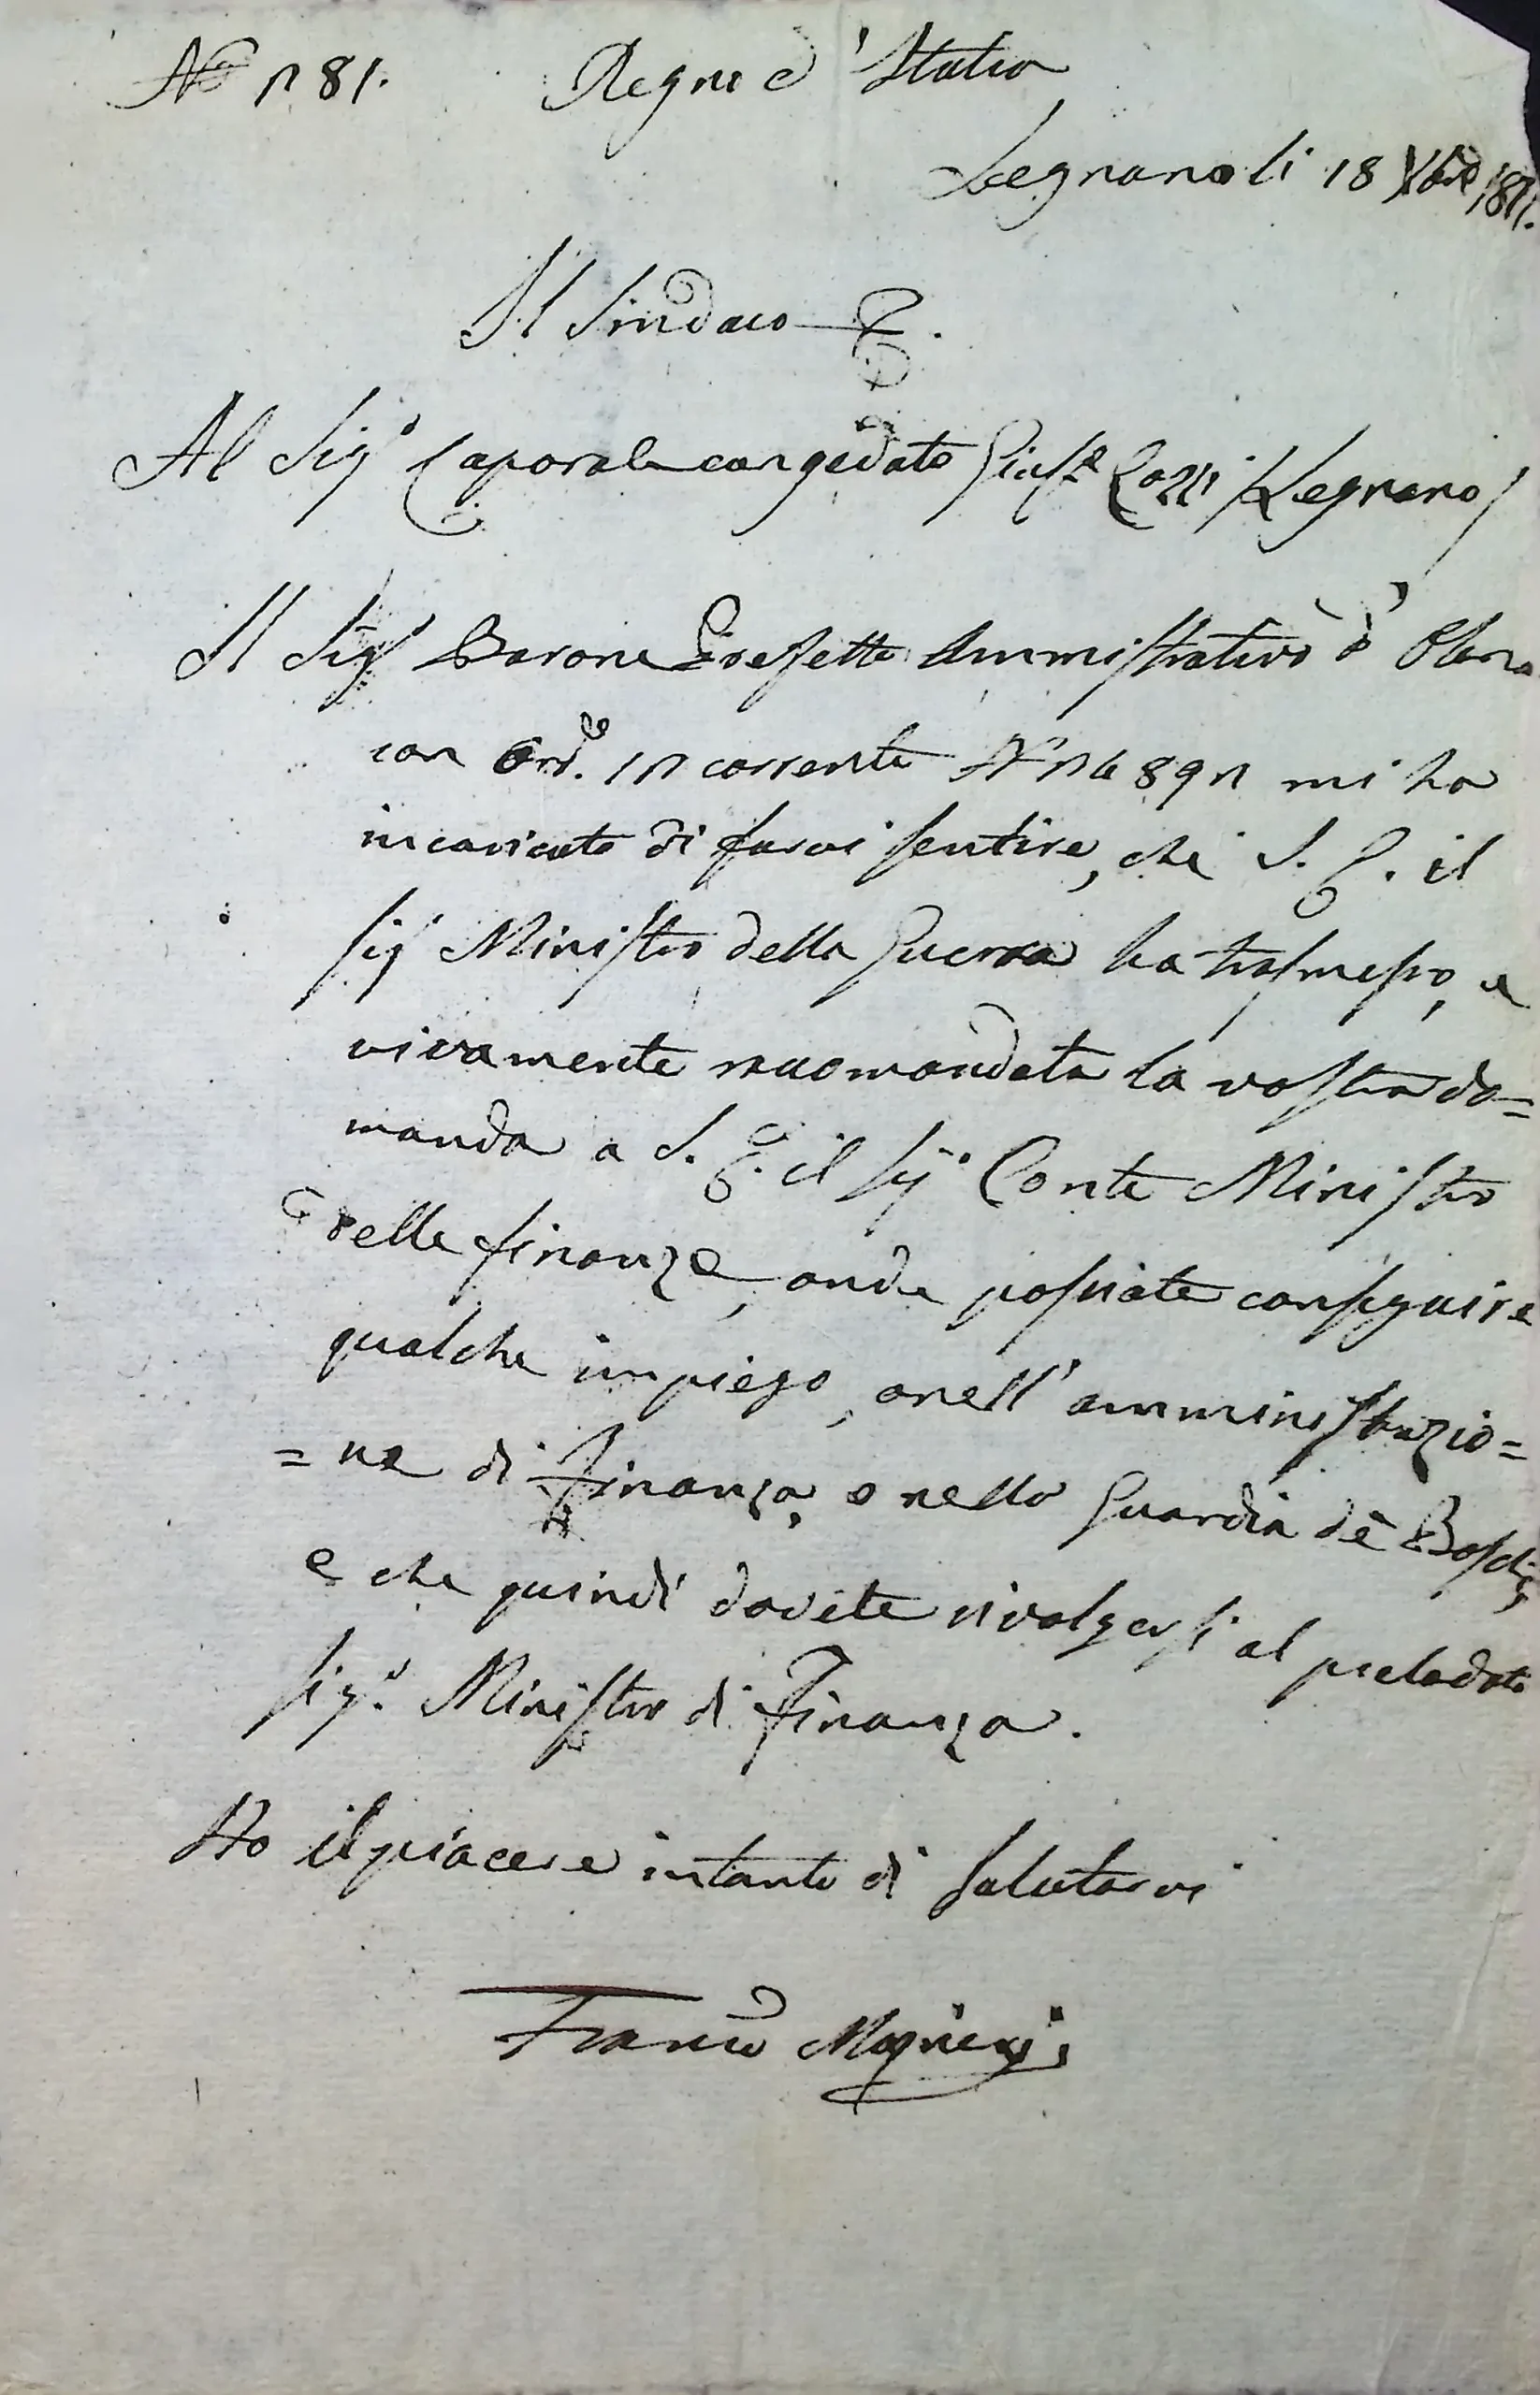 No 781. Regno d'Italia
Legnano li 18 Xbre 1811.
Il Sindaco
Al Sigr Caporale congedato Giuse Cozzi /Legnano/
Il Sigr Barone Prefetto Ammistrativo d' Olona
con Ord. 17 corrente No 7489 mi ha
incaricato di farvi sentire, che S. E. il
Sigr Ministro della Guerra ha trasmesso, e
vivamente raccomandata la vostra do=
manda a S. E. il Sigr Conte Ministro
delle finanze, onde possiate conseguire
qualche impiego, o nell' amministrazio=
=ne di Finanza, o nella Guardia de Boschi,
e che quindi dovete rivolgersi al prelodato
Sigr. Ministro di Finanza.
Ho il piacere intanto di salutarvi
Franco